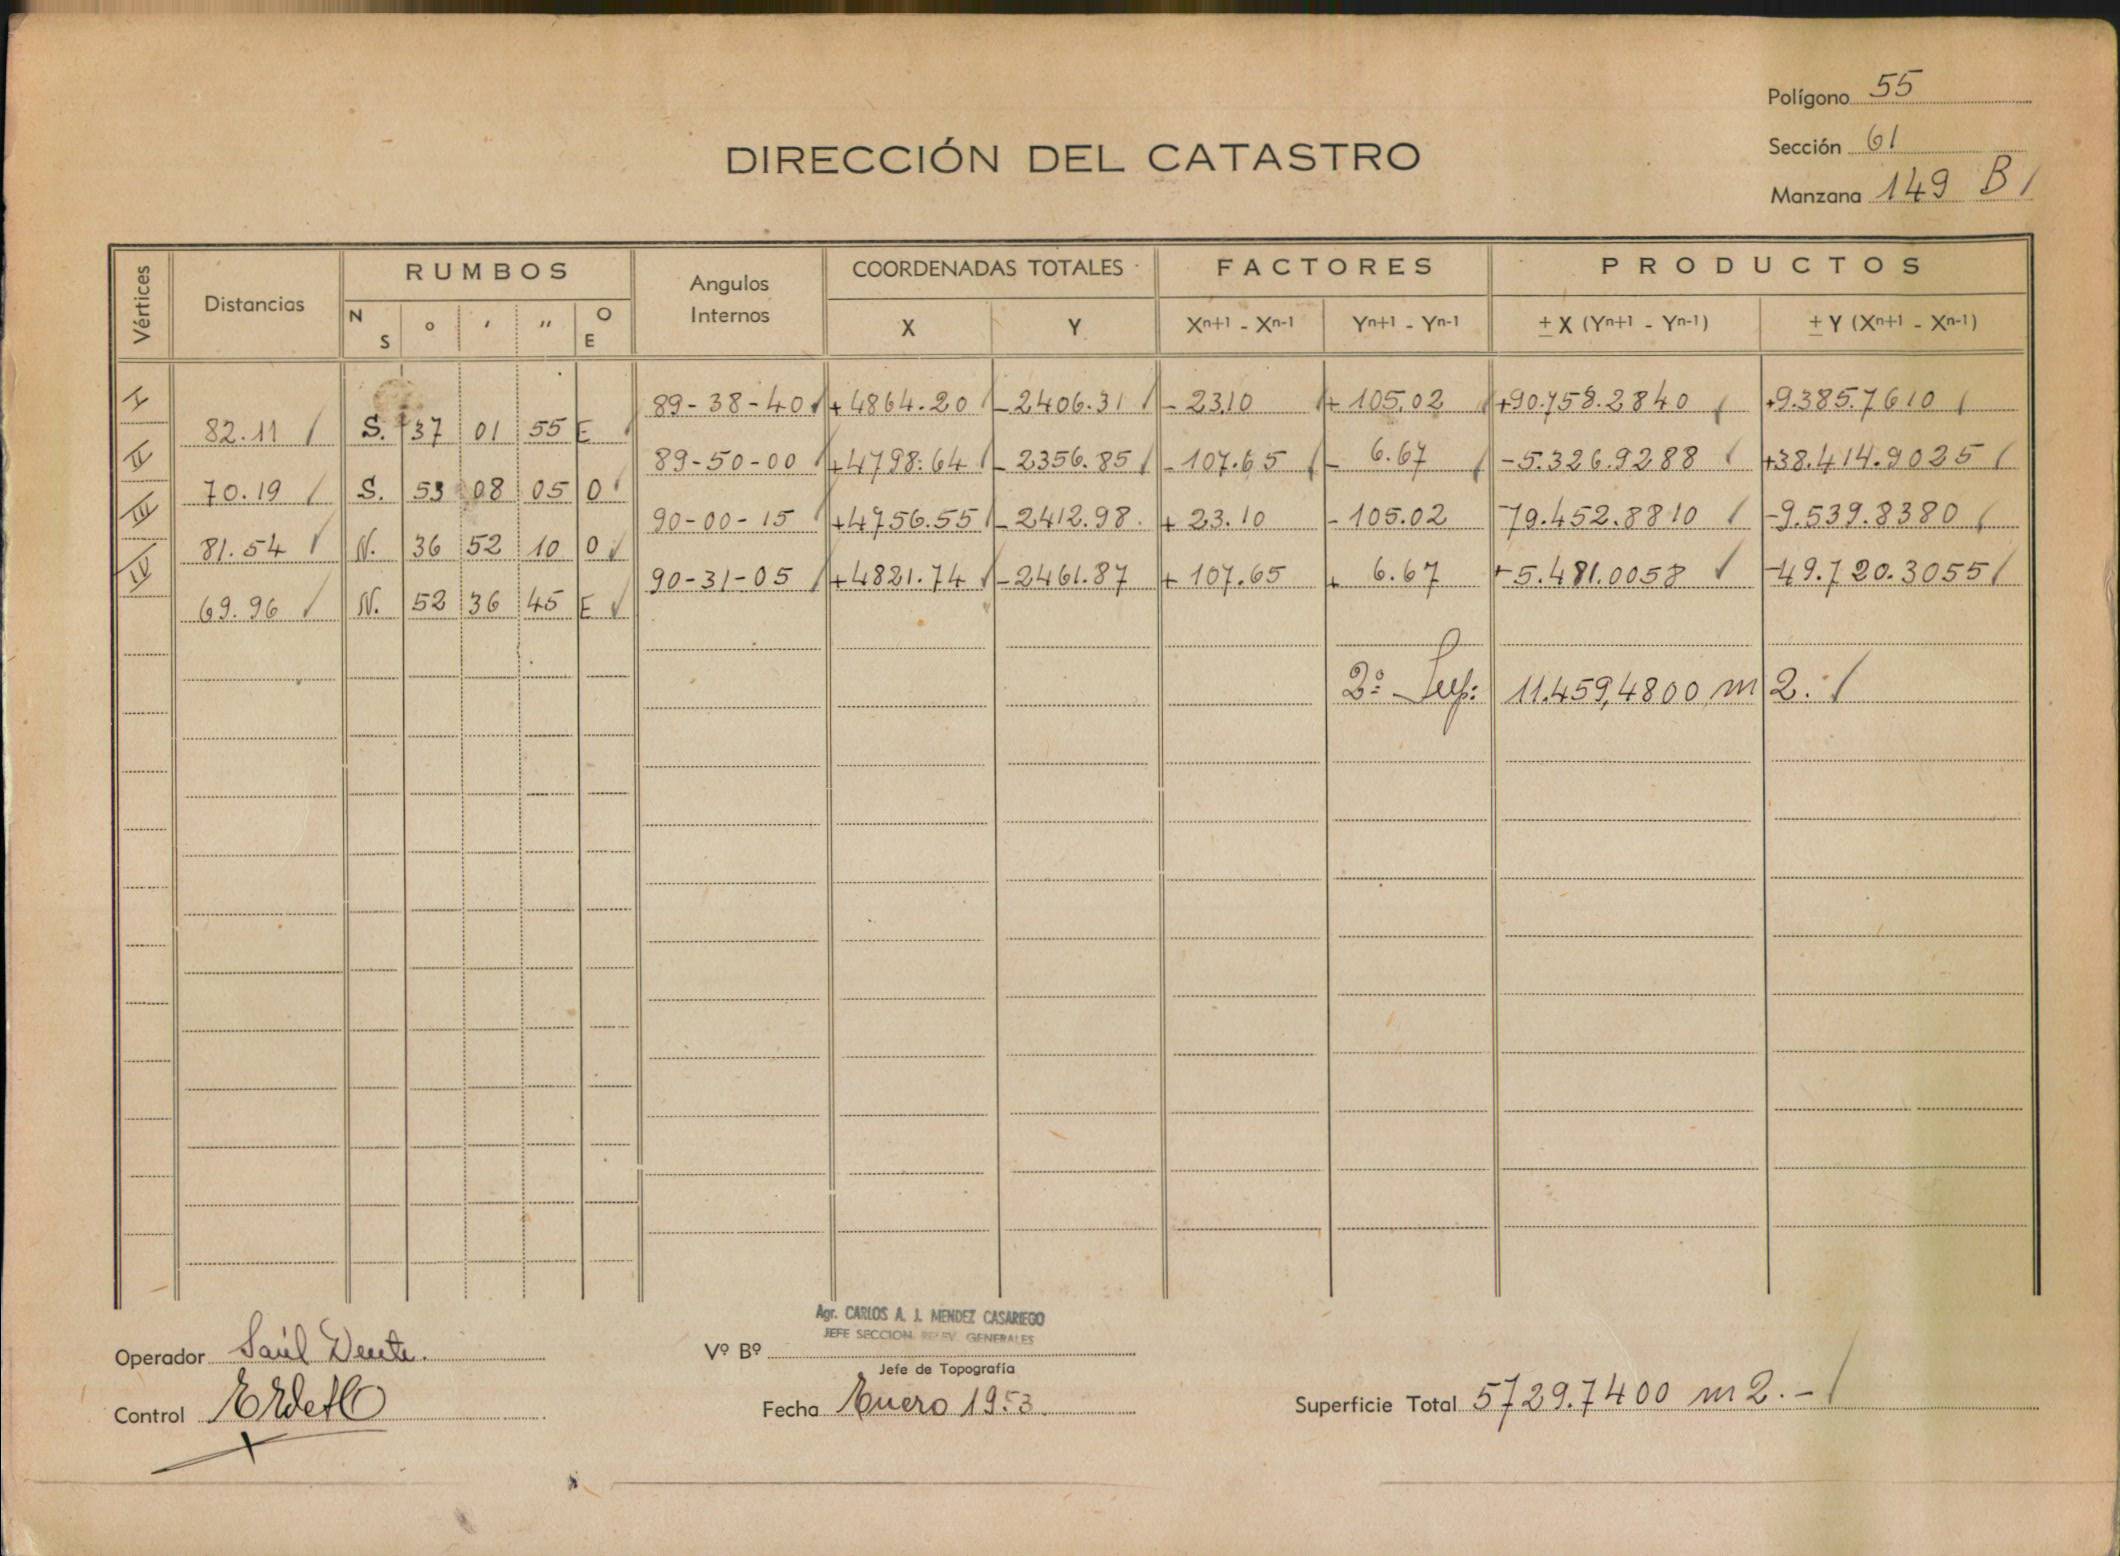 Polígono 55
DIRECCIÓN DEL CATASTRO
Sección 61
Manzana 149 B
Vértices Distancias RUMBOS Angulos Internos COORDENADAS TOTALES FACTORES PRODUCTOS
N S ° ' '' O E X Y Xn+1 - Xn-1 Yn+1 - Yn-1 ± X (Yn+1 - Yn-1) ± Y (Xn+1 - Xn-1)
I 89-38-40 +4864.20 -2406.31 -23.10 +105.02 +90.758.2840 +9.385.7610
82.11 S. 37 01 55 E
II 89-50-00 +4798.64 -2356.85 -107.65 - 6.67 -5.326.9288 +38.414.9025
70.19 S. 53 08 05 O
III 90-00-15 +4756.55 -2412.98 +23.10 -105.02 -79.452.8810 -9.539.8380
81.54 N. 36 52 10 O
IV 90-31-05 +4821.74 -2461.87 +107.65 + 6.67 +5.481.0058 -49.720.3055
69.96 N. 52 36 45 E
2º Sup: 11.459,4800 m2.
Agr. CARLOS A. J. MENDEZ CASARIEGO
JEFE SECCION RELEV. GENERALES
Operador Saúl
Vº Bº
Jefe de Topografía
Control
Fecha Enero 1953
Superficie Total 5729.7400 m2.-